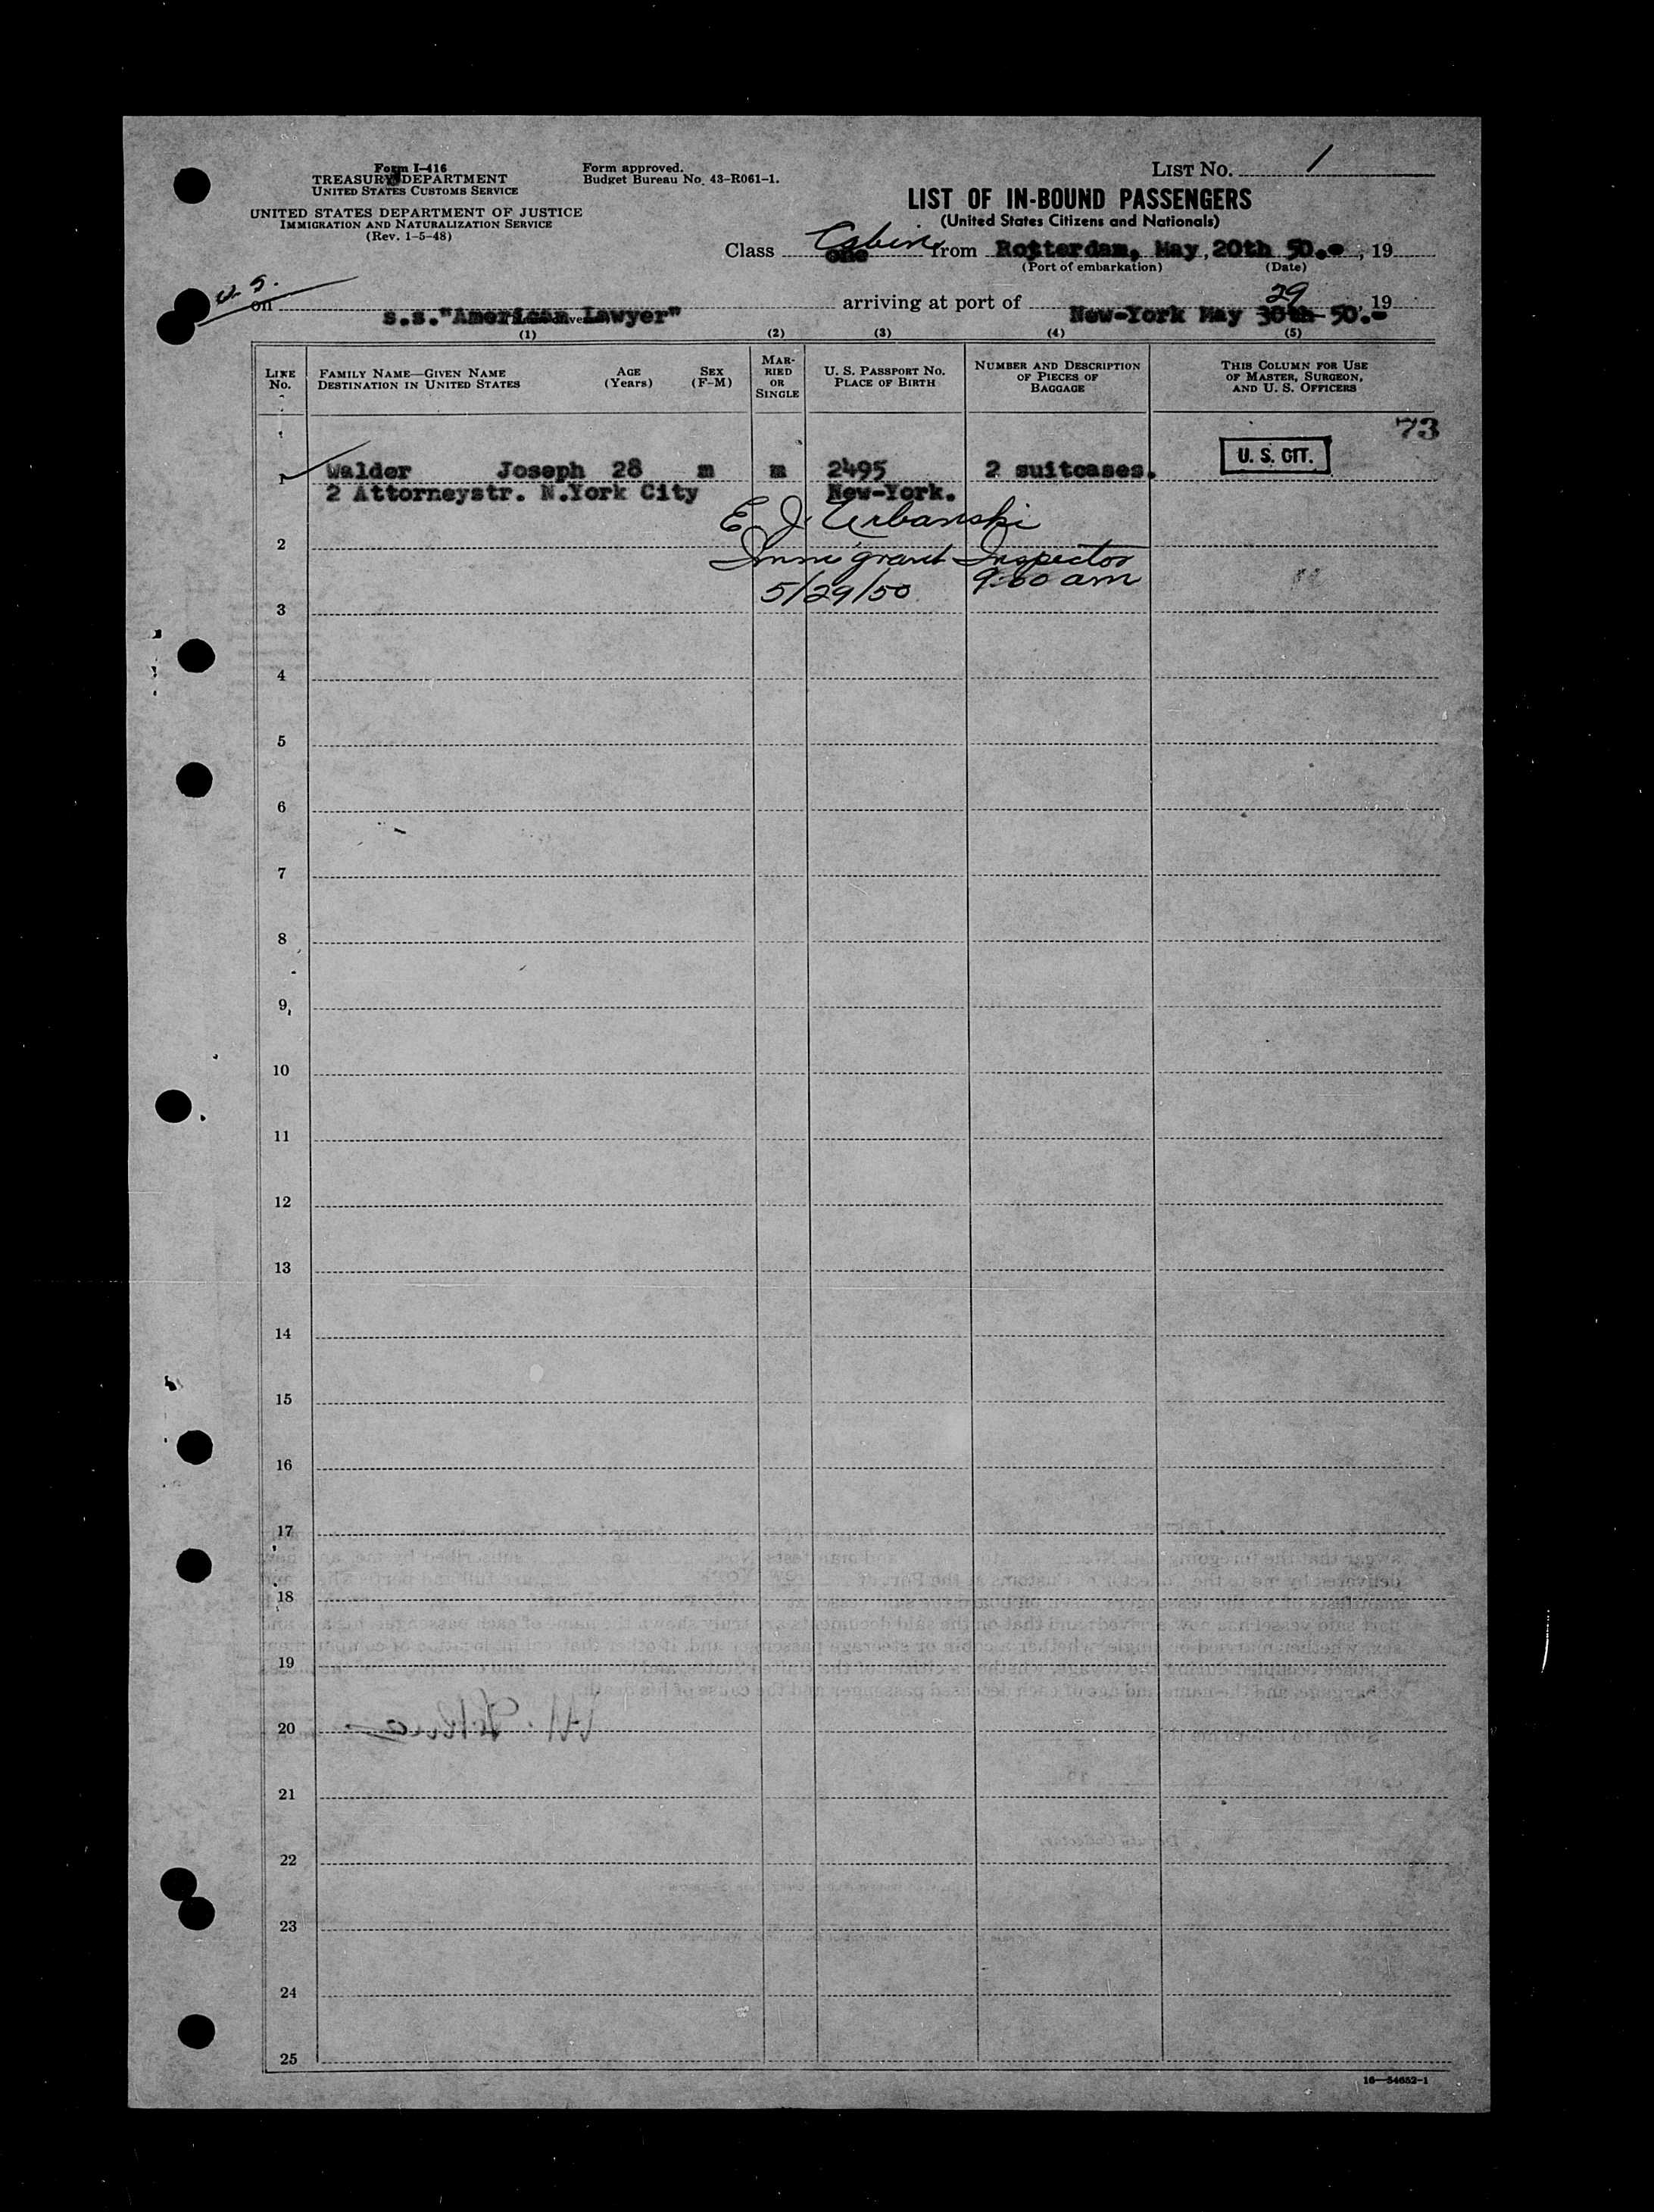 Form I-416
TREASURY DEPARTMENT
UNITED STATES CUSTOMS SERVICE
UNITED STATES DEPARTMENT OF JUSTICE
IMMIGRATION AND NATURALIZATION SERVICE
(Rev. 1-5-48)
Form approved.
Budget Bureau No. 43-R061-1.
LIST No. 1
LIST OF IN-BOUND PASSENGERS
(United States Citizens and Nationals)
Class one Cabin from Rotterdam, May, 20th 50.-, 19
(Port of embarkation) (Date)
U.S.
on s.s."American Lawyer" arriving at port of New-York May 30th 29 50.-, 19
(1) (2) (3) (4) (5)
LINE No. FAMILY NAME—GIVEN NAME DESTINATION IN UNITED STATES AGE (Years) SEX (F-M) MARRIED OR SINGLE U. S. PASSPORT No. PLACE OF BIRTH NUMBER AND DESCRIPTION OF PIECES OF BAGGAGE THIS COLUMN FOR USE OF MASTER, SURGEON, AND U. S. OFFICERS
73
1 Walder Joseph 28 m m 2495 2 suitcases. U. S. CIT.
2 Attorneystr. N.York City New-York.
E J Urbanski
2
Immigrant Inspector
5/29/50 9:00 am
3
4
5
6
7
8
9
10
11
12
13
14
15
16
17
18
19
20
21
22
23
24
25
16—54652-1